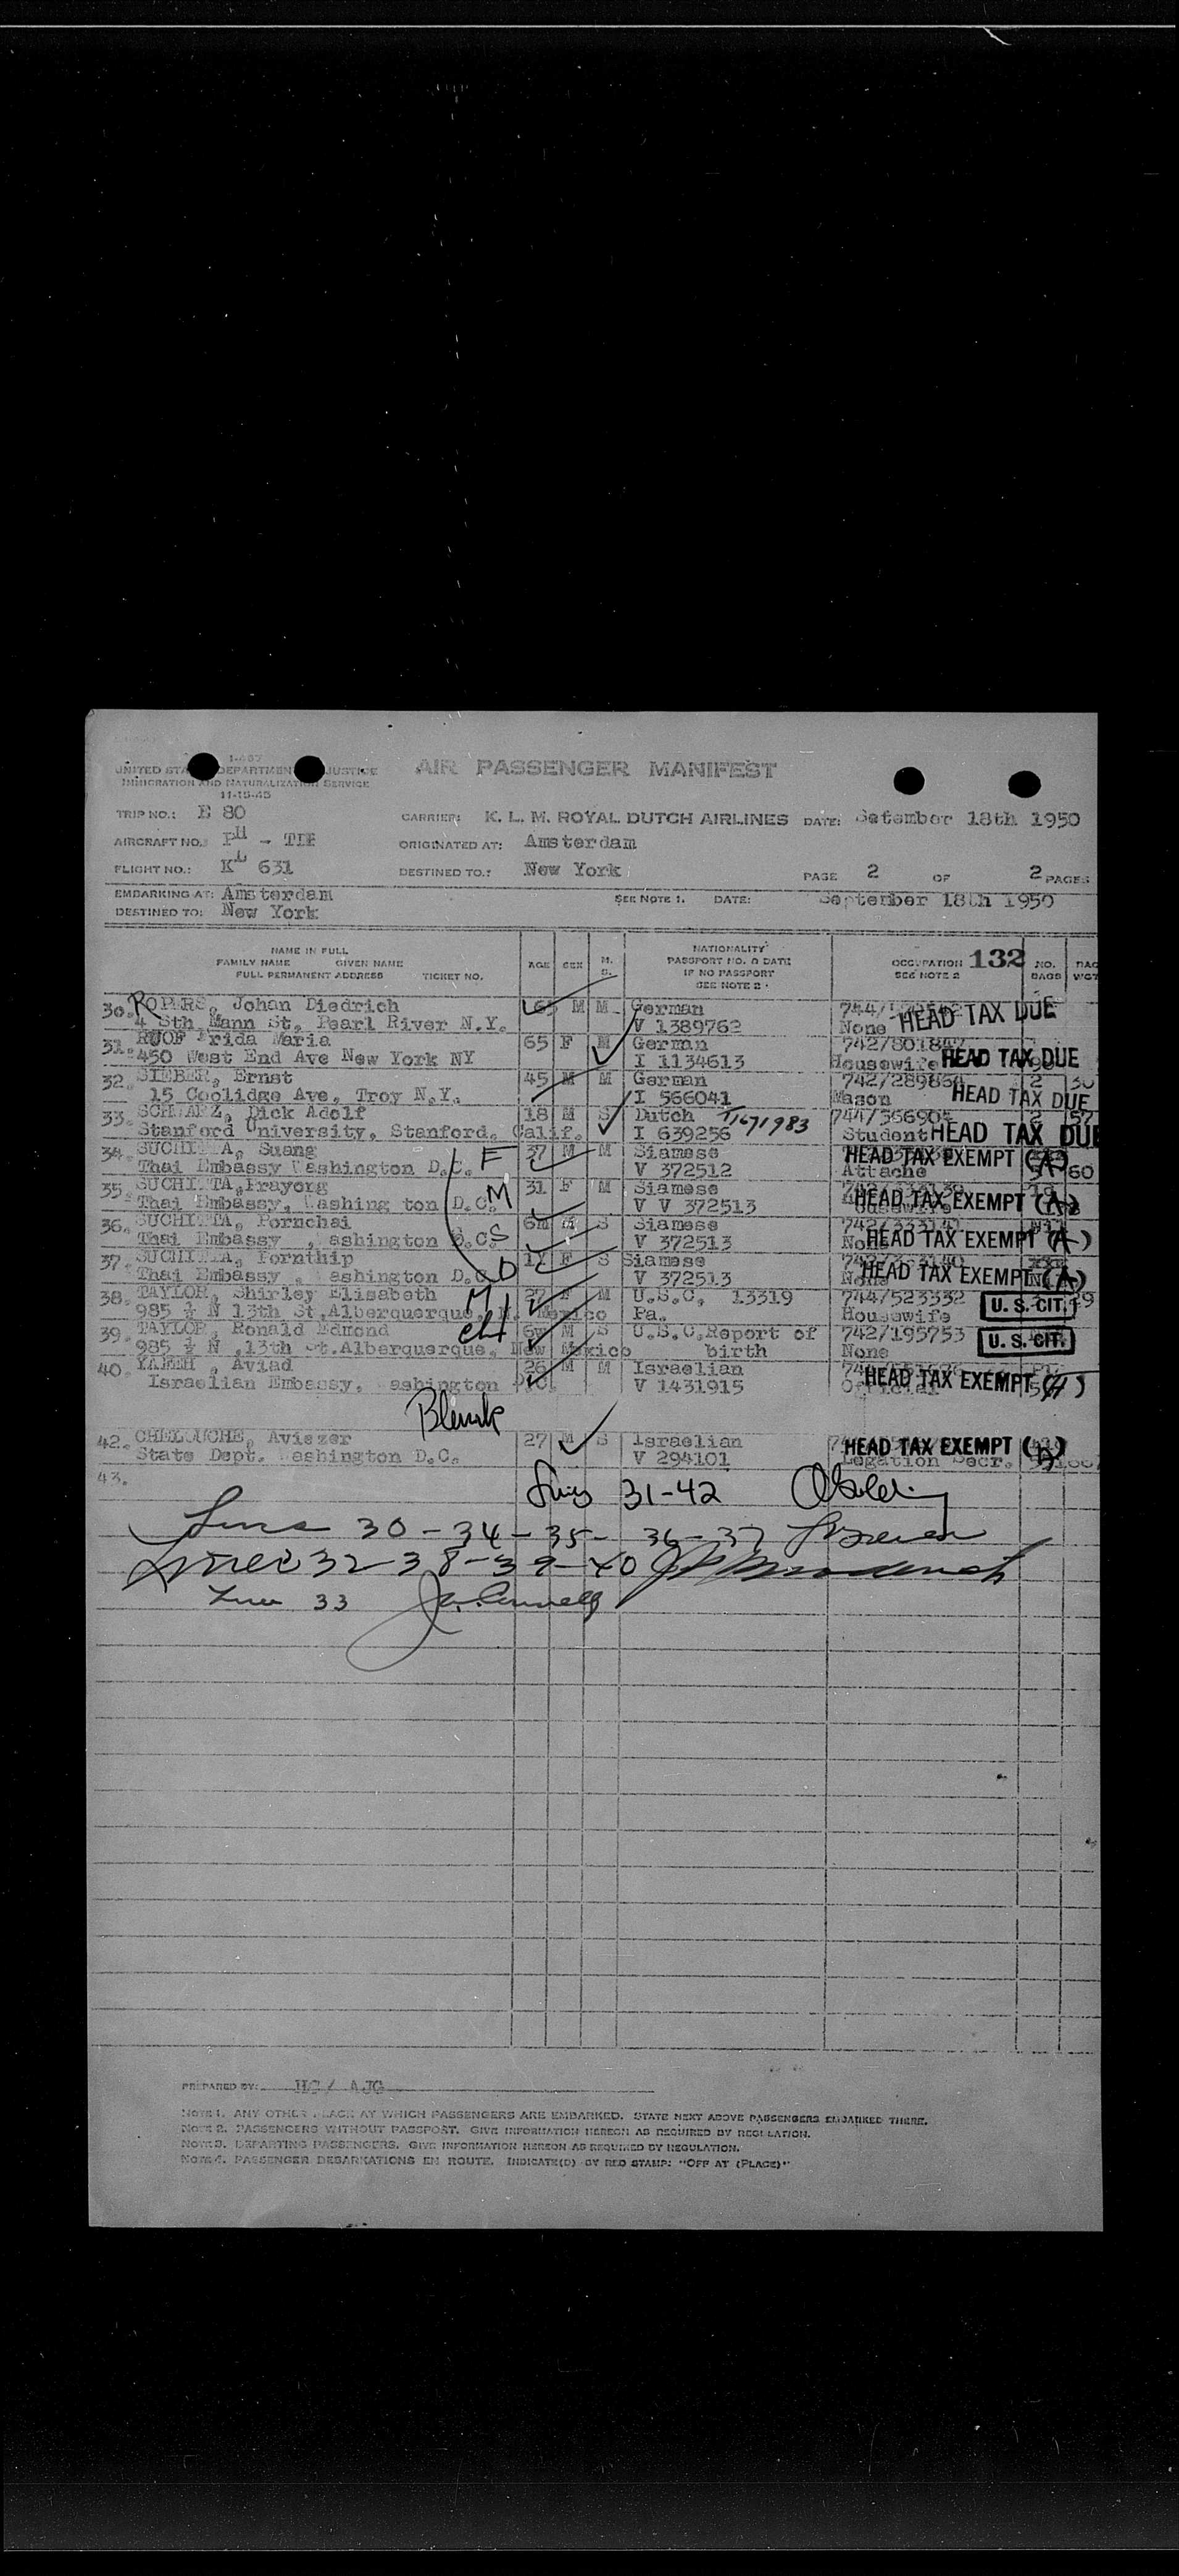 I-467
UNITED STA DEPARTMEN JUSTICE
IMMIGRATION AND NATURALIZATION SERVICE
11-15-45
AIR PASSENGER MANIFEST
TRIP NO.: E 80 CARRIER: K. L. M. ROYAL DUTCH AIRLINES DATE: Setember 18th 1950
AIRCRAFT NO.: PH - TIF ORIGINATED AT: Amsterdam
FLIGHT NO.: KL 631 DESTINED TO.: New York PAGE 2 OF 2 PAGES
EMBARKING AT: Amsterdam SEE NOTE 1. DATE: September 18th 1950
DESTINED TO: New York
NAME IN FULL
FAMILY NAME GIVEN NAME
FULL PERMANENT ADDRESS TICKET NO.
AGE SEX M. S.
NATIONALITY
PASSPORT NO. & DATE
IF NO PASSPORT
SEE NOTE 2
OCCUPATION 132
SEE NOTE 2
NO. BAGS
BAG WGT
30. ROPERS, Johan Diedrich 65 M M German HEAD TAX DUE
4 Sth Mann St, Pearl River N.Y. V 1389762 None
31. RUOF Frida Maria 65 F M German 742/801847
450 West End Ave New York NY I 1134613 Housewife HEAD TAX DUE
32. SIEBER, Ernst 45 M M German 742/289864 2 30
15 Coolidge Ave, Troy N.Y. I 566041 Mason HEAD TAX DUE
33. SCHWARZ, Dick Adolf 18 M S Dutch T1671983 744/556905 2 57
Stanford University, Stanford, Calif. I 639256 Student HEAD TAX DUE
34. SUCHITTA, Suang F 37 M M Siamese HEAD TAX EXEMPT (A)
Thai Embassy Washington D.C. V 372512 Attache 60
35. SUCHITTA, Prayorg M 31 F M Siamese HEAD TAX EXEMPT (A)
Thai Embassy, Washing ton D.C. V V 372513
36. SUCHITTA, Pornchai S 6m M S Siamese
Thai Embassy , ashington D.C. V 372513 None HEAD TAX EXEMPT (A)
37. SUCHITTA, Pornthip D F S Siamese
Thai Embassy , ashington D.C. V 372513 None HEAD TAX EXEMPT (A)
38. TAYLOR, Shirley Elisabeth M 27 F M U.S.C, 13319 744/523332 U. S. CIT.
985 ½ N 13th St,Alberquerque, N. Mexico Pa. Housewife
39. TAYLOR, Ronald Edmond M S U.S.C.Report of 742/195753 U. S. CIT.
985 ½ N ,13th St.Alberquerque, New Mexico birth None
40. YAFEH , Aviad 26 M M Israelian HEAD TAX EXEMPT
Israelian Embassy, ashington D.C. V 1431915
Blank
42. CHELOUCHE, Aviezer 27 M S Israelian HEAD TAX EXEMPT
State Dept. Washington D.C. V 294101 Legation Secr.
43.
Lines 31-42
Lines 30-34-35-36-37
Lines 32-38-39-40
Line 33
PREPARED BY: HC/ AJG
NOTE 1. ANY OTHER PLACE AT WHICH PASSENGERS ARE EMBARKED. STATE NEXT ABOVE PASSENGERS EMBARKED THERE.
NOTE 2. PASSENGERS WITHOUT PASSPORT. GIVE INFORMATION HEREON AS REQUIRED BY REGULATION.
NOTE 3. DEPARTING PASSENGERS. GIVE INFORMATION HEREON AS REQUIRED BY REGULATION.
NOTE 4. PASSENGER DEBARKATIONS EN ROUTE. INDICATE(D) BY RED STAMP: "OFF AT (PLACE)"